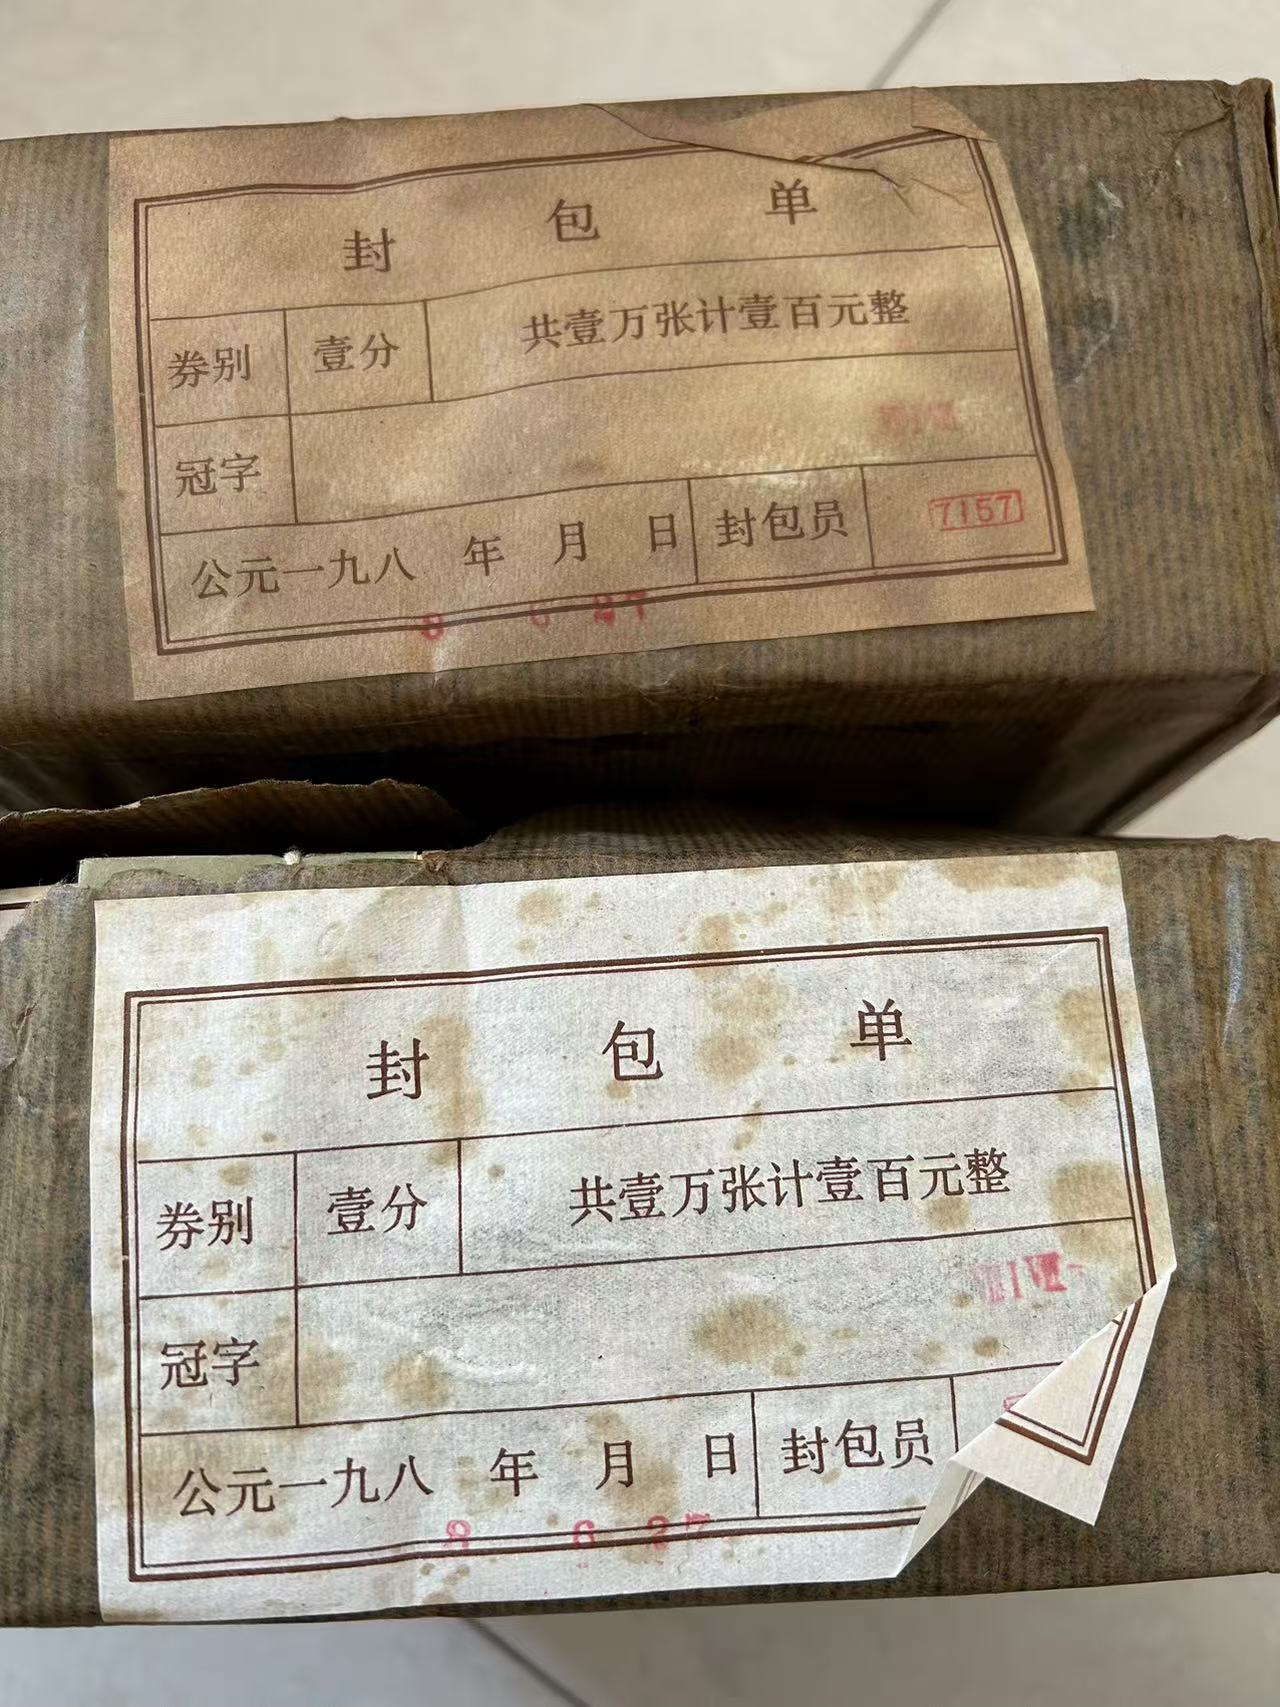 封 包 单
券别 壹分 共壹万张计壹百元整
冠字
公元一九八 年 月 日 封包员 7157
8 6 27
封 包 单
券别 壹分 共壹万张计壹百元整
冠字
公元一九八 年 月 日 封包员
8 6 27